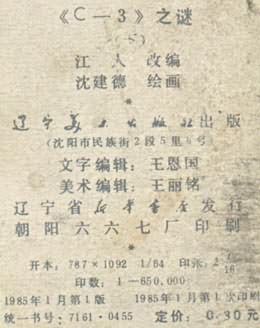 《C—3》之谜
(下)
江人 改编
沈建德 绘画
*
辽宁美术出版社出版
(沈阳市民族街2段5里 号
文字编辑: 王恩国
美术编辑: 王丽铭
辽宁省新华书店发行
朝阳六六七厂印刷
*
开本: 787×1092 1/64 印张: 2 /16
印数: 1—650,000
1985年1月第1版 1985年1月第1次印刷
统一书号: 7161·0455 定价: 0.30元